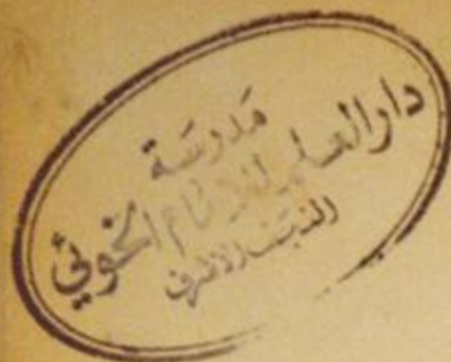 مدرسة
دار العلم للإمام الخوئي
النجف الاشرف